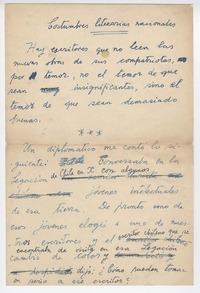 Costumbres literarias nacionales
Hay escritores que no leen las
nuevas obras de sus compatriotas,
por temor, no el temor de que
sean insignificantes, sino el
temor de que sean demasiado
buenas.
* * *
Un diplomático me contó lo si-
guiente: Conversaba en la
Legación de Chile en X con algunos
jóvenes intelectuales
de esa tierra. De pronto uno de
esos jóvenes elogió a uno de nues-
tros escritores y el escritor chileno que se
encontraba de visita en esa Legación
cambió de color y
dijo: ¿Cómo pueden tomar
en serio a ese escritor?